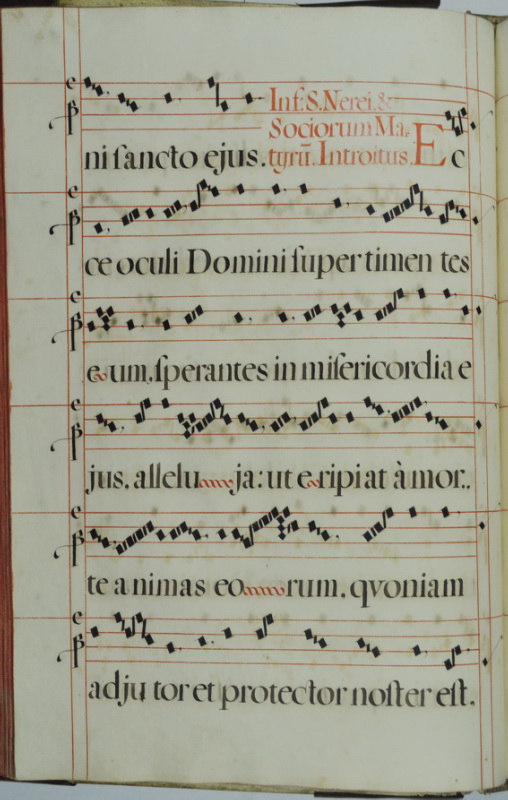 Inf: S. Nerei, &
Sociorum Ma,
ni sancto ejus. tyrū. Introitus. E c
ce oculi Domini super timen tes
e um, sperantes in misericordia e
jus, allelu ja: ut e ripi at à mor..
te a nimas eo rum, qvoniam
adju tor et protector noster est.